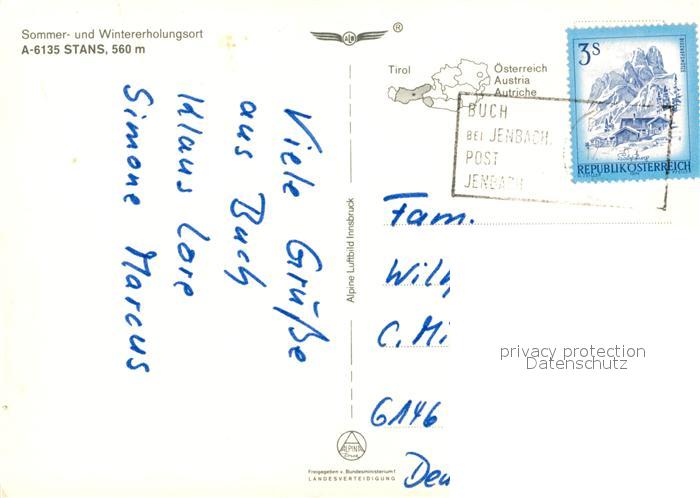 Sommer- und Wintererholungsort
A-6135 STANS, 560 m
Viele Grüße
aus Buch
Klaus Lore
Simone Marcus
Alpine Luftbild Innsbruck
ALPINA
Druck
Freigegeben v. Bundesministerium f
LANDESVERTEIDIGUNG
®
Tirol
Österreich
Austria
Autriche
BUCH
BEI JENBACH,
POST
JENBACH
3S
REPUBLIK ÖSTERREICH
Fam.
C. Mi
6146
privacy protection
Datenschutz